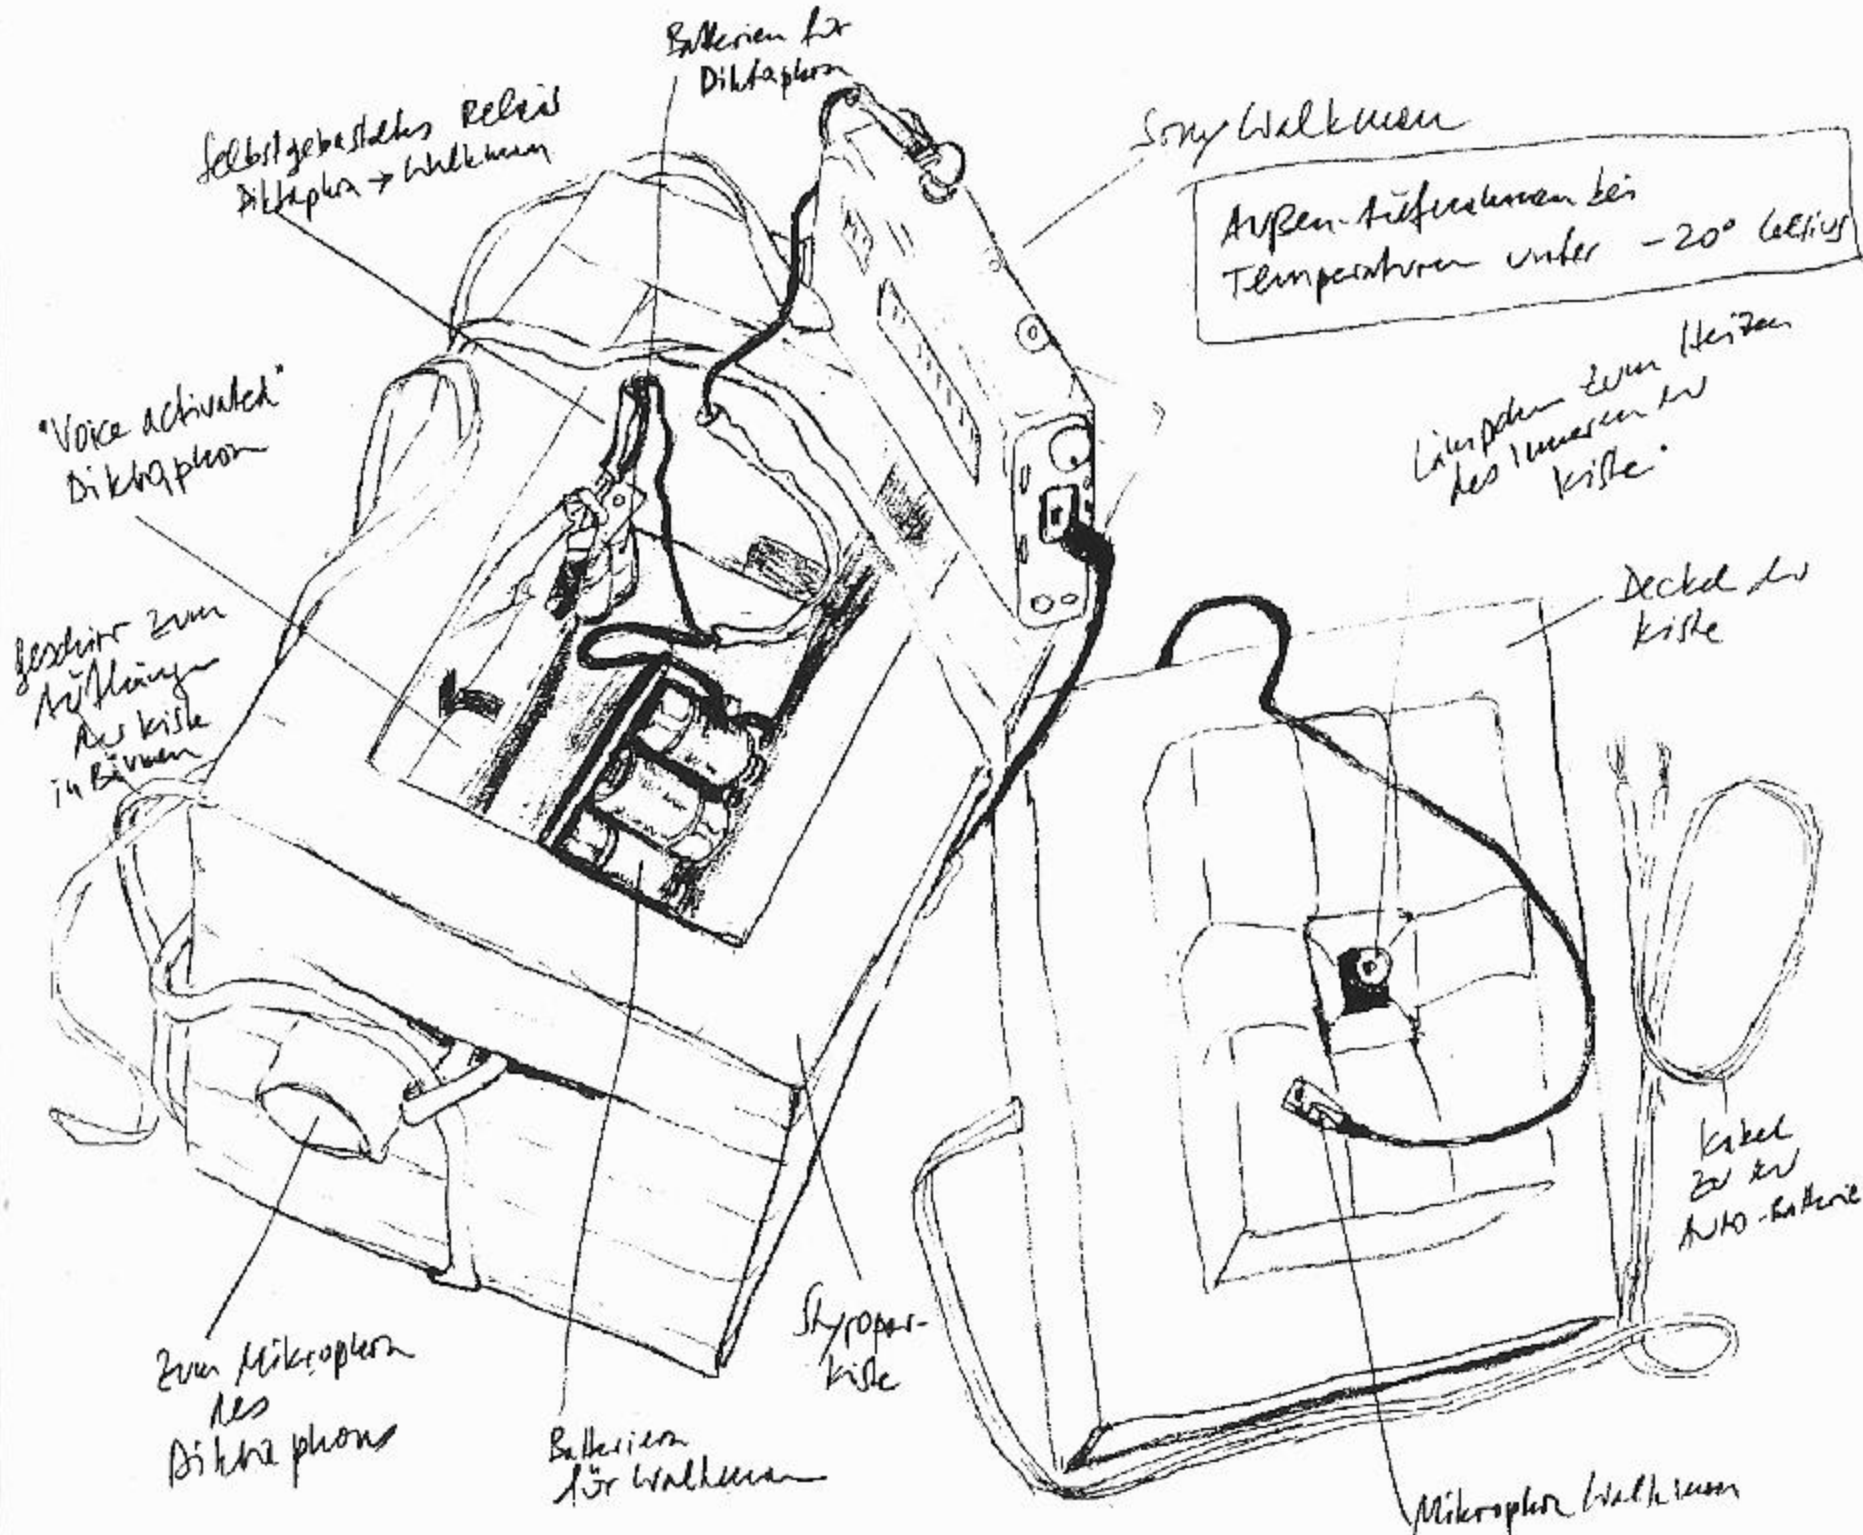 Batterien für
Diktaphon
Selbstgebasteltes Relais
Diktaphon → Walkman
Sony Walkman
Außen-Aufnahmen bei
Temperaturen unter -20° Celsius
"Voice activated"
Diktaphon
Lämpchen zum Heizen
des Inneren der
Kiste
Geschirr zum
Aufhängen
der Kiste
in Bäumen
Deckel der
Kiste
Kabel
zu der
Auto-Batterie
Styropor-
Kiste
Zum Mikrophon
des
Diktaphons
Batterien
für Walkman
Mikrophon Walkman